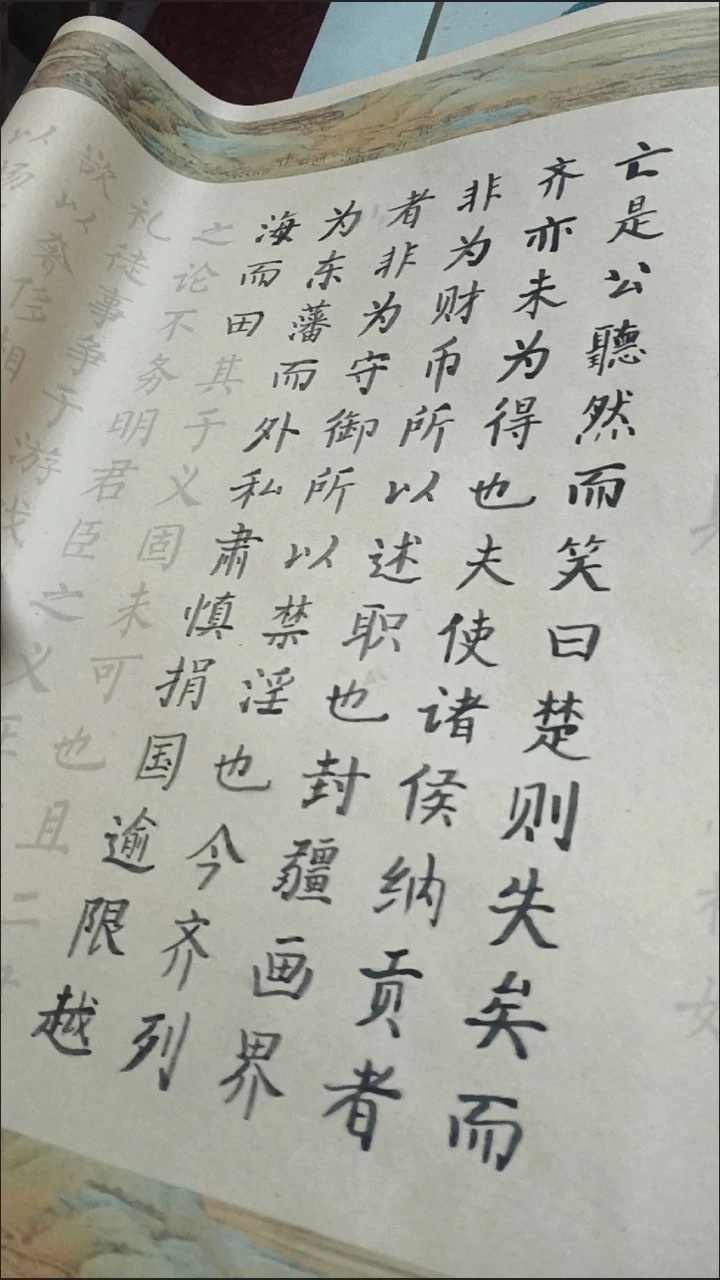 亡是公聽然而笑曰楚则失矣而
齐亦未为得也夫使诸侯纳贡者
非为财币所以述职也封疆画界
者非为守御所以禁淫也今齐列
为东藩而外私肃慎捐国逾限越
海而田其于义固未可也且二
之论不务明君臣之义正
礼徒事争于游戏
欲以奢侈相
以扬